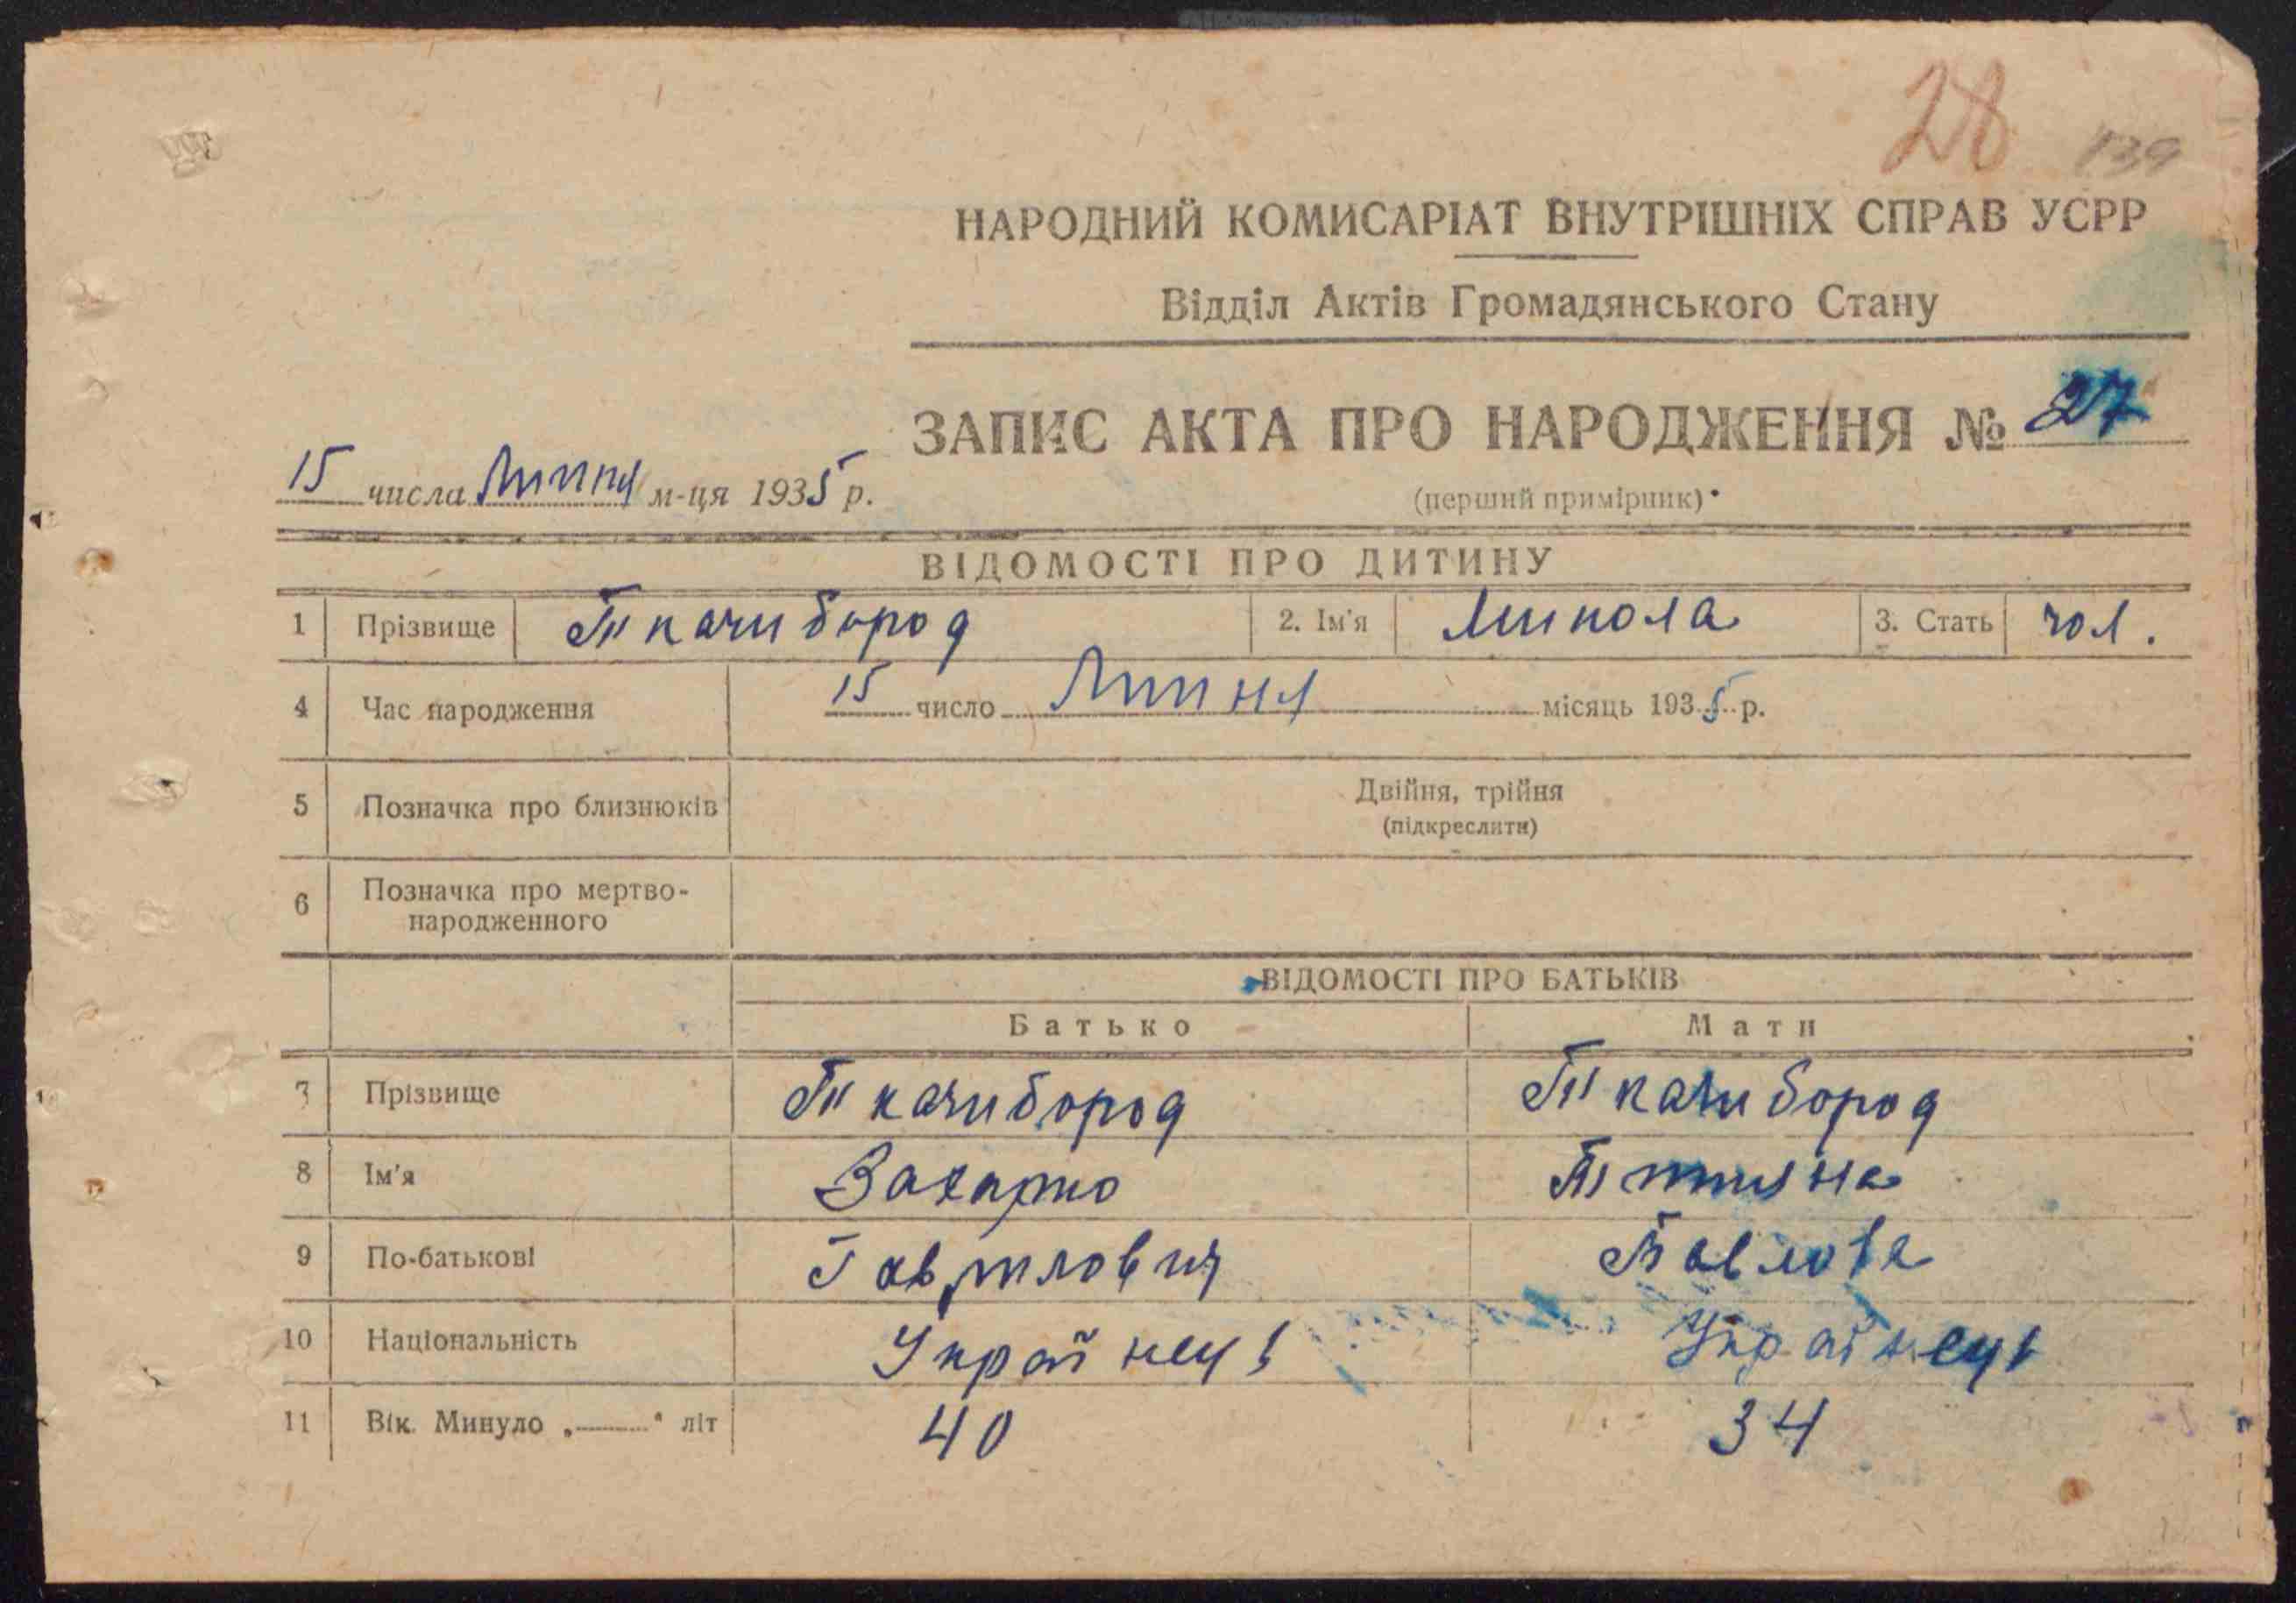 28 139
НАРОДНИЙ КОМИСАРІАТ ВНУТРІШНІХ СПРАВ УСРР
Відділ Актів Громадянського Стану
ЗАПИС АКТА ПРО НАРОДЖЕННЯ № 27
15 числа Липня м-ця 1935 р.
(перший примірник)
ВІДОМОСТІ ПРО ДИТИНУ
1 Прізвище Ткачибород 2. Ім'я Микола 3. Стать чол.
4 Час народження 15 число Липня місяць 1935 р.
5 Позначка про близнюків Двійня, трійня
(підкреслити)
6 Позначка про мертво-
народженного
ВІДОМОСТІ ПРО БАТЬКІВ
Батько Мати
7 Прізвище Ткачибород Ткачибород
8 Ім'я Захарко Тітяна
9 По-батькові Гаврилович Павлова
10 Національність Україннец Україннец
11 Вік. Минуло „ “ літ 40 34